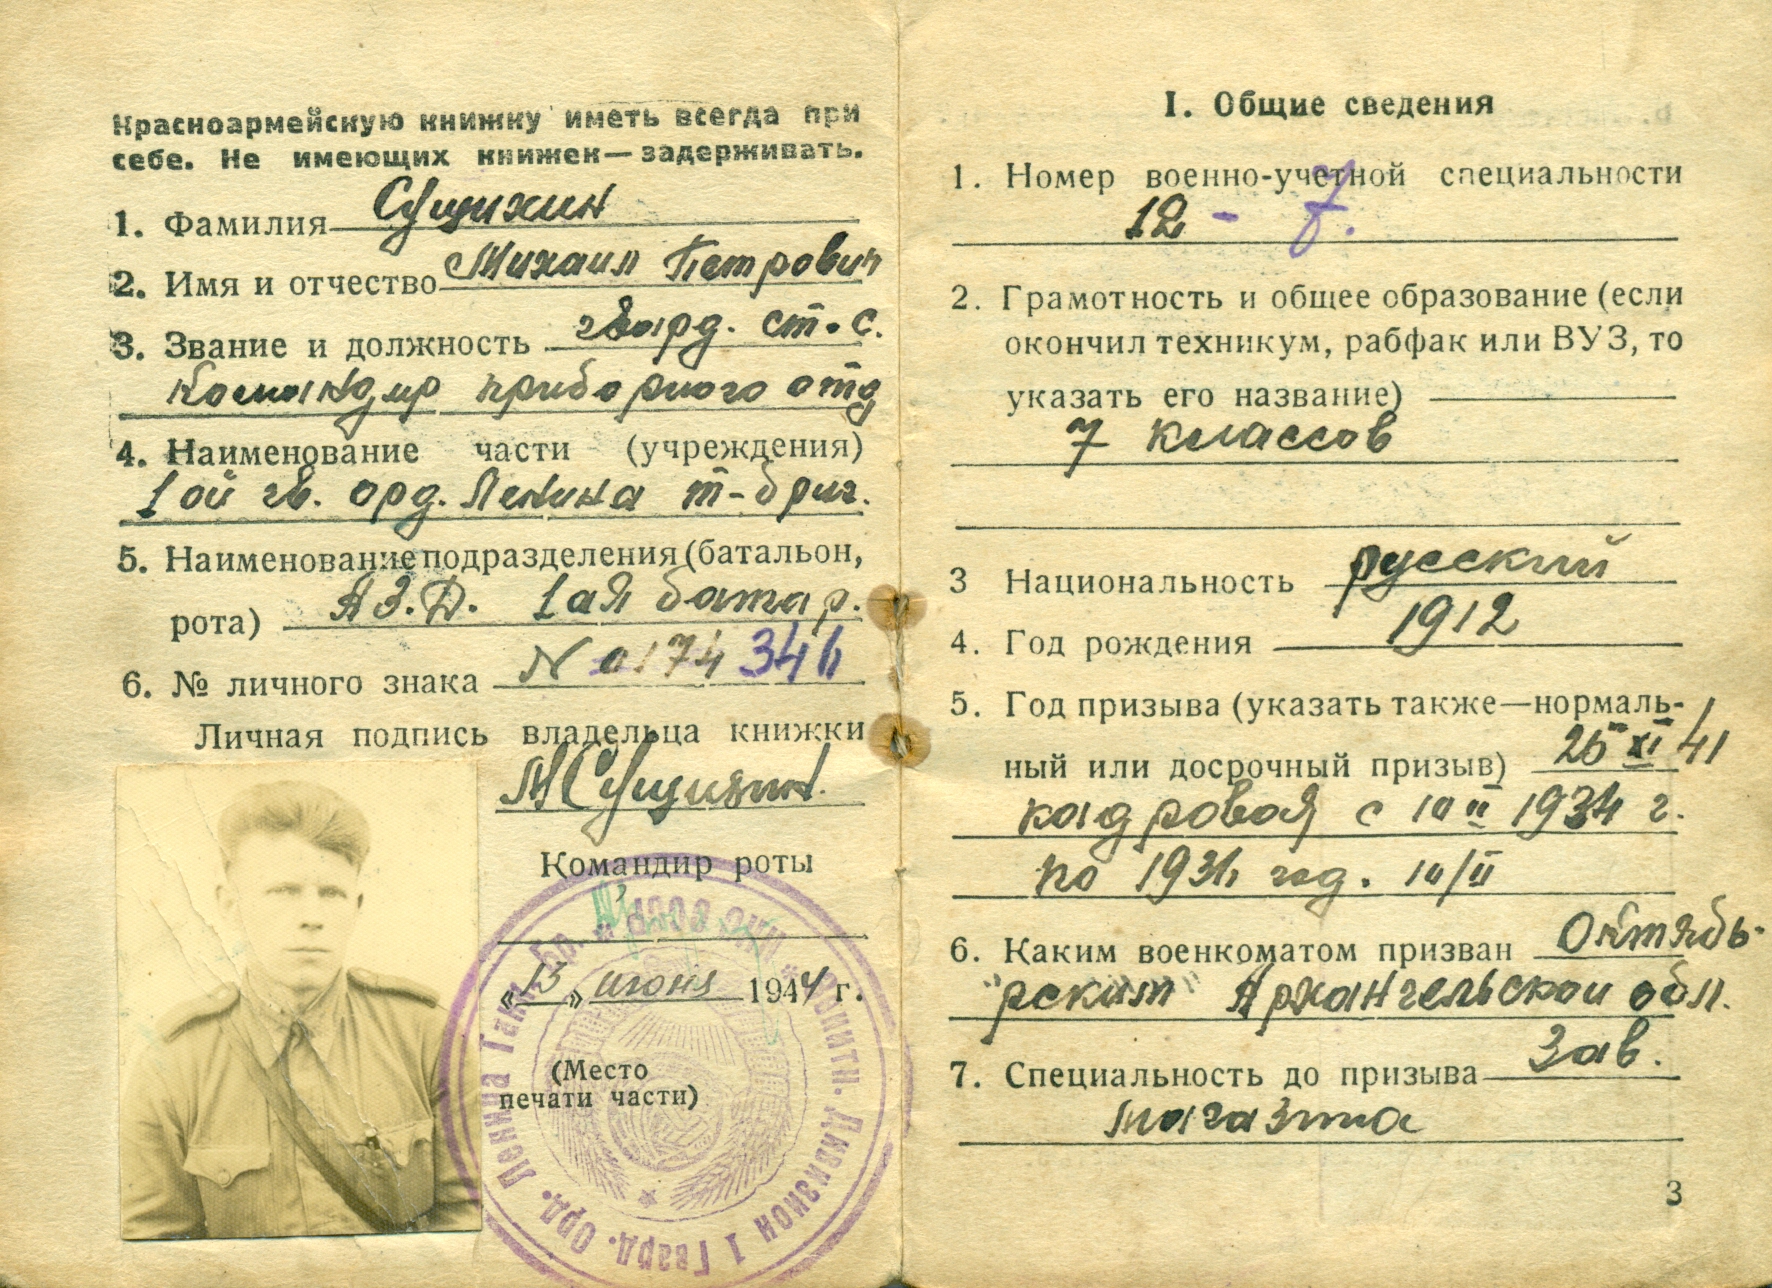 Красноармейскую книжку иметь всегда при
себе. Не имеющих книжек—задерживать.
1. Фамилия Сущихин
2. Имя и отчество Михаил Петрович
3. Звание и должность гвард. ст. с.
Командир приборного отд
4. Наименование части (учреждения)
1ой гв. орд. Ленина т-бриг.
5. Наименование подразделения (батальон,
рота) АЗ.Д. 1ая батар.
6. № личного знака N 0174
Личная подпись владельца книжки
МСущихин.
Командир роты
«13» июня 1944 г.
(Место
печати части)
Зенитн. Дивизион 1 Гвард. Орд. Ленина Танк. Бр.
I. Общие сведения
1. Номер военно-учетной специальности
12 - 7.
2. Грамотность и общее образование (если
окончил техникум, рабфак или ВУЗ, то
указать его название)
7 классов
3 Национальность русский
4. Год рождения 1912
5. Год призыва (указать также—нормаль-
ный или досрочный призыв) XI 41
кадровая с 1934 г.
по год.
6. Каким военкоматом призван Октябрь-
"рским" Архангельской обл.
7. Специальность до призыва Зав.
магазина
3